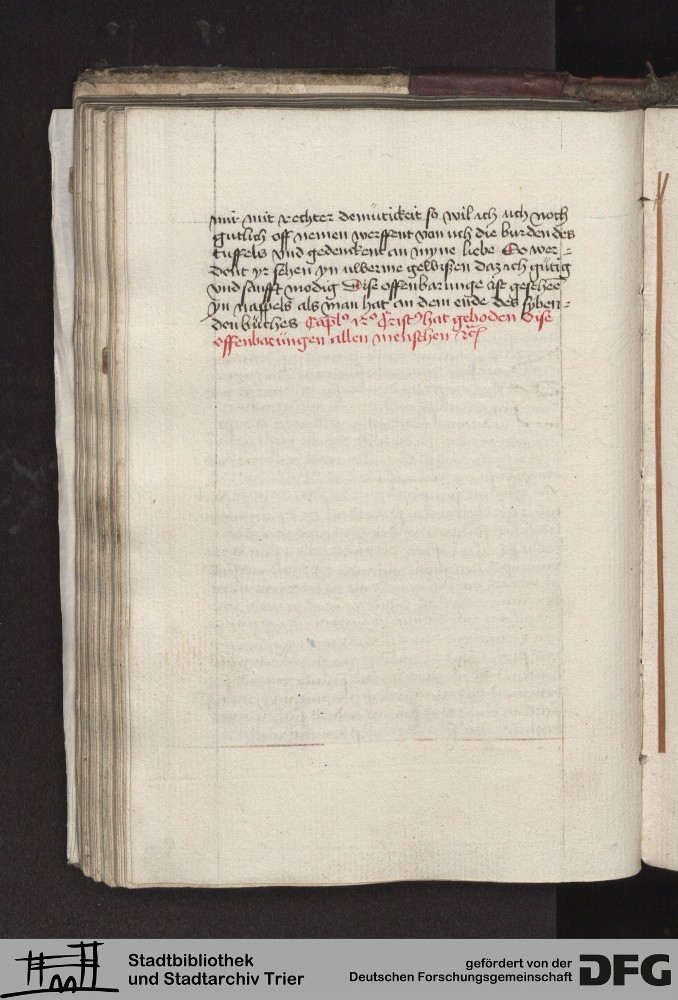 mir mit rechter demütickeit so wil ich uch noch
gutlich off nemen werffent von uch die burden des
tuffels vnd gedenckent an myne liebe So wer-
dent yr sehen yn uberme gewissen daz ich gütig
vnd sanfft modig Dise offenbarunge ist geschee
yn nappels als man hat an dem ende des syben-
den büches Caplo 19o Crist9 hat geboden dise
offenbarungen allen menschen rc
Stadtbibliothek
und Stadtarchiv Trier
gefördert von der
Deutschen Forschungsgemeinschaft
DFG